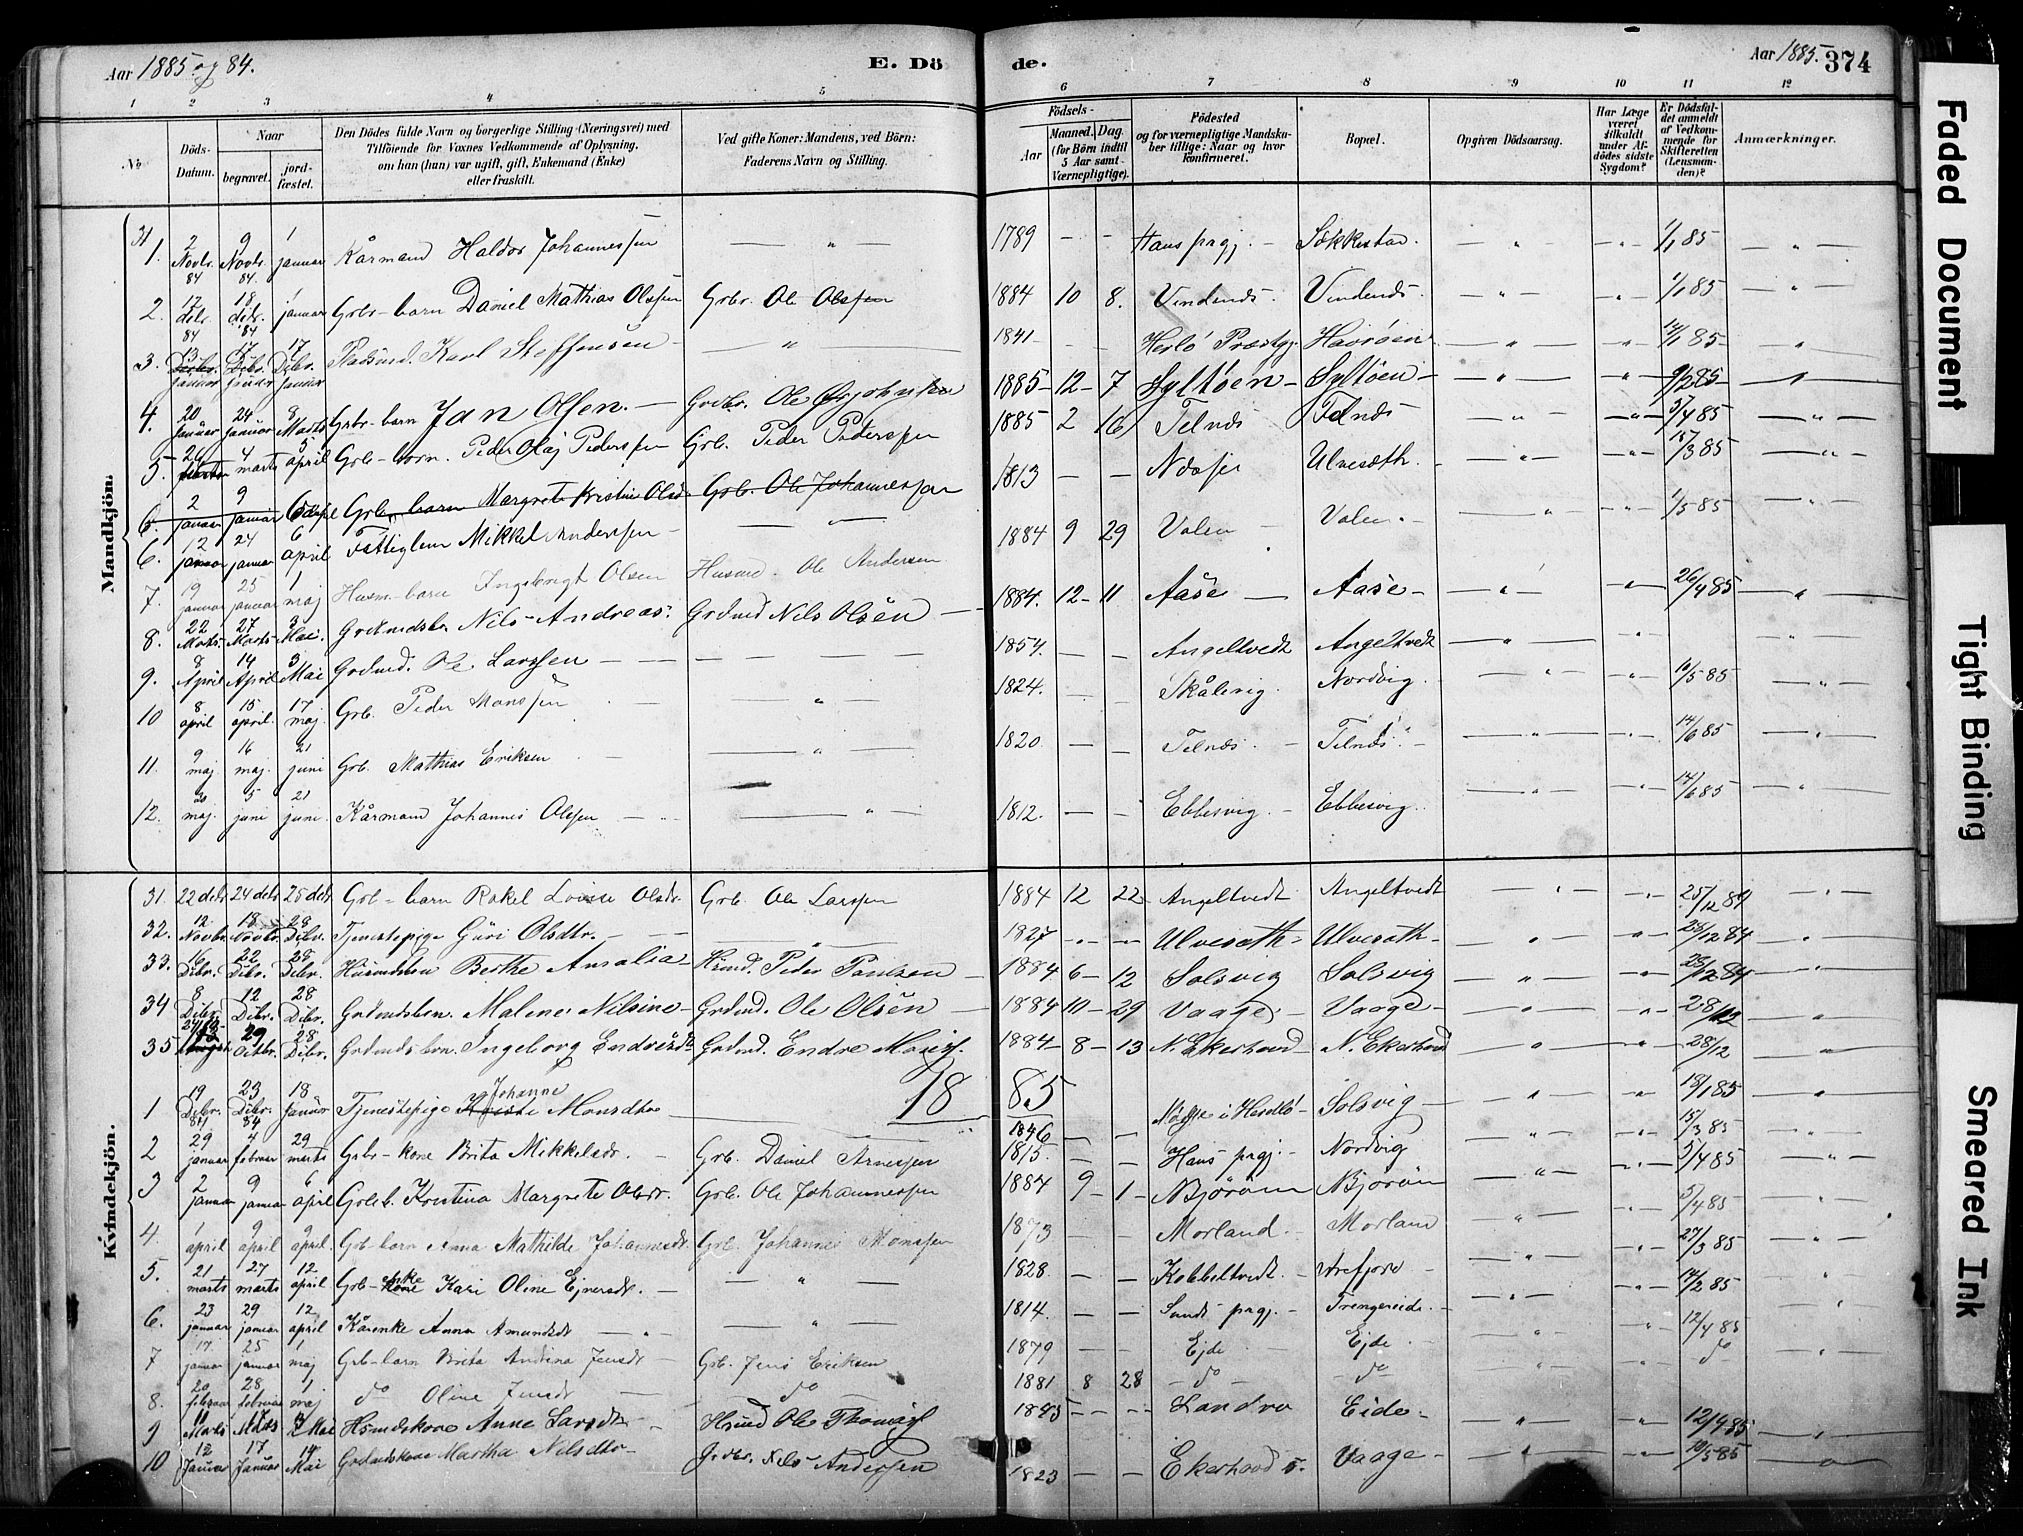 Aar 1885 og 84.
E. Dö
de.
Aar 1885.
374
1 2 3 4 5 6 7 8 9 10 11 12
No
Döds-Datum.
Naar
begravet.
jord-fæstet.
Den Dödes fulde Navn og borgerlige Stilling (Næringsvei) med
Tilföiende for Voxnes Vedkommende af Oplysning,
om han (hun) var ugift, gift, Enkemand (Enke)
eller fraskilt.
Ved gifte Koner: Mandens, ved Börn:
Faderens Navn og Stilling.
Födsels-
Aar
Maaned. Dag.
(for Börn indtil
5 Aar samt
Værnepligtige).
Födested
og for værnepligtige Mandska-
ber tillige: Naar og hvor
konfirmeret.
Bopæl.
Opgiven Dödsaarsag.
Har Læge
været
tilkaldt
under Af-
dödes sidste
Sygdom?
Er Dödsfal-
det anmeldt
af Vedkom-
mende for
Skifteretten
(Lensman-
den)?
Anmærkninger.
Mandkjön.
1. 2 Novbr. 84 9 Novbr. 84. 1 januar Kårmand Haldor Johannessen — " — 1789 - - Haus prgj. Sökkestar. " " 1/1 85 "
2. 17 debr. 84 18 debr. 84 1 januar Grbr-barn Daniel Mathias Olssen Grbr. Ole Olssen 1884 10 8. Vindenæs. Vindenæs. " " 1/1 85 "
3. 13 januar 17 januar 17 januar Karl Steffensen — " — 1841 - - Herlö Præstgj. Havröen " " 14/1 85 "
4. 20 januar 24 januar 8 Marts Grbr-barn Jan Olsen. Grdbr. Ole 1885 12 7 Syltöen Syltöen " " 9/2 85 "
5. 26 4 marts 5 april Grb-barn. Peder Olaj Pederssen Grb. Peder Pederssen 1885 2 16 Telnæs Telnæs " " 5/4 85 "
6. 2 januar 9 januar 6 april Grb-barn Margrete Kristine Olsdr. Grb. Ole Johannessen
6. 12 januar 24 januar 6 april Fattiglem Mikkel Anderssen — " — 1813 - - Ulvesæth. " " 15/3 85 "
7. 19 januar 25 januar 1 maj Husm-barn Ingebrigt Olsen Husmd. Ole Andersen 1884 9 29 Valen Valen. " " 1/5 85 "
8. 22 Marts 27 Marts 3 Mai. Nils Andreas Grdmd Nils Olsen 1884. 12 11 Aase Aase " " 26/4 85 "
9. 8 April 14 April 3 Mai Grdmd. Ole Larssen — — 1857. - - Angeltvedt Angeltvedt " "
10 8 april 15 april 17 maj. Grb. Peder Monssen — " — 1824. - - Skålevig. Nordvig. " " 10/5 85 "
11. 9 maj. 16 maj. 21 juni Grb. Mathias Eriksen — " — 1820. - - Telnæs. Telnæs. " " 14/6 85 "
12. maj. 5 juni 21 juni. Kårmand Johannes Olssen — " — 1812. - - Ebbesvig. Ebbesvig. " " 14/6 85 "
Kvindekjön.
31. 22 debr 24 debr 25 debr Grb-barn Rakel Lovise Olsdr. Grb. Ole Larssen 1884 12 22 Angeltvedt Angeltvedt " " 25/12 84 "
32. 12 Novbr. 18 Novbr. 28 Debr. Tjenestepige Güri Olsdtr. — " — 1827 - - Ulvesæth Ulvesæth " " 28/12 84 "
33. 16 Debr. 22 Debr. 28 Debr. Berthe Amalia Hsmd. Peder Paulsen 1884 6 12 Solsvig Solsvig " " 28/12 84 "
34 8 Debr. 12 Debr. 28 Debr. Malene Nilsine Grdmd. Ole Olsen 1884 10 29 Vaage Vaage " " 28/12 "
35 29 Octbr. 28 Debr. Grdmdsbrn. Ingeborg Grdmd. Endre 1884 8 13 N. Ekerhovd N. Ekerhovd " " 28/12 "
1885
1 19 Debr. 84 23 Debr. 84 18 Januar Tjenestepige Johanne Monsdtr 1846 - - i Herdlö Solsvig " " 18/1 85 "
2 29 januar 4 februar 29 marts Grbr-kone Brita Mikkelsdr. Grb. Daniel Arnessen 1815. - - Haus prgj. Nordvig " " 15/3 85 "
3 2 januar 9 januar 6 april Kristina Margrete Olsdr. Grb. Ole Johannessen 1884 9 1 Björöen Björöen " " 5/4 85 "
4. 1 april 9 april 9 april. Grb-barn Anna Mathilde Johannesdr. Grb. Johannes Monssen 1873 - - Morland. Morland " " 5/4 85 "
5. 21 marts 27 marts 12 april Grb-enke Kari Oline Ejnersdr. — " — 1828 - - Kobbeltvedt. " " 27/3 85 "
6. 23 januar 29 januar 12 april Kårenke Anna Amundsdr — " — 1814. - - Sunds prgj. Trengereide. " " 14/2 85 "
7 17 januar 25 januar 1 maj Grb-barn Brita Andrina Jensdr Grb. Jens Eriksen 1879 - - Ejde Ejde. " " 12/4 85 "
8. 20 februar 28 februar 1 maj do Oline Jensdr do 1881 8 28 do do " " do "
9 11 Marts 17 Marts 3 Mai Hsmdskone Anne Larsdtr Hsmd Ole 1845 - - Landro Eide " " 12/4 85 "
10 12 Januar 17 Januar 14 Mai Grdmdskone Martha Nilsdtr Grdbr. Nils Andersen 1823 - - Ekerhovd Vaage " " 10/5 85 "
Faded Document
Tight Binding
Smeared Ink